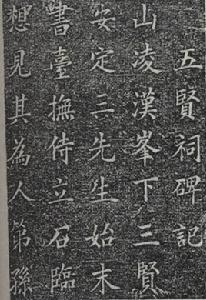 五賢祠碑記
山凌漢峯下三賢
安定三先生始末
書臺撫侍立石臨
想見其為人第孫